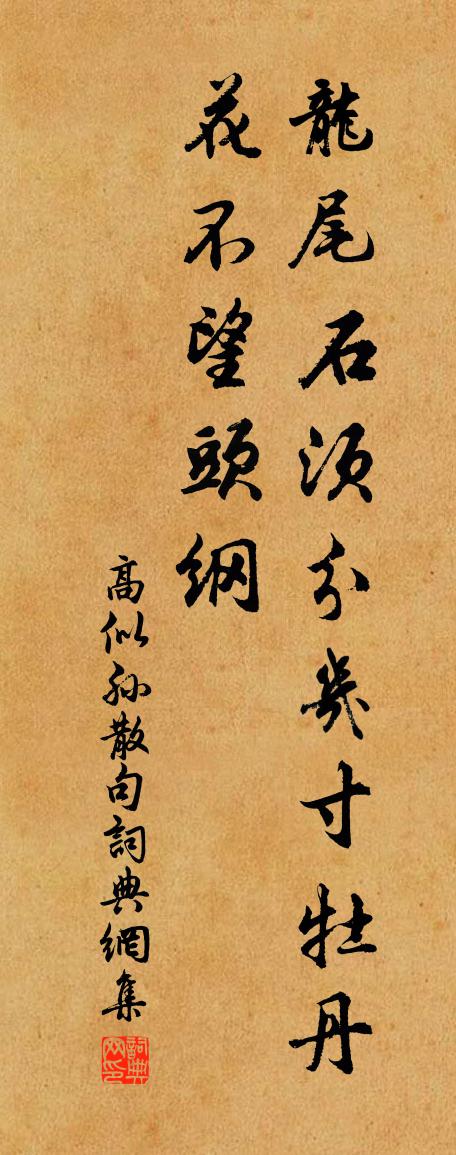 龍尾石須分幾寸牡丹
花不望頭綱
高似孫散句詞典網集
詞典網印